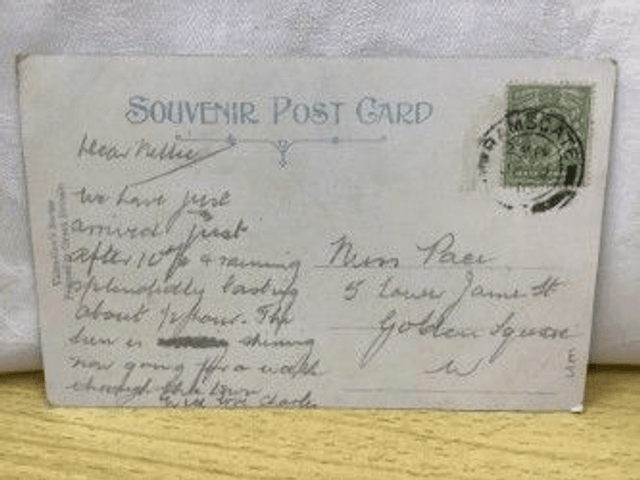 SOUVENIR POST CARD
RAMSGATE
Dear Nellie
We have just
arrived just
after 10 & a raining
splendidly lasting
about ½ hour. The
sun is shining
now going for a walk
through the town
with love Charles
Miss Pace
5 Lower James St
Golden Square
W